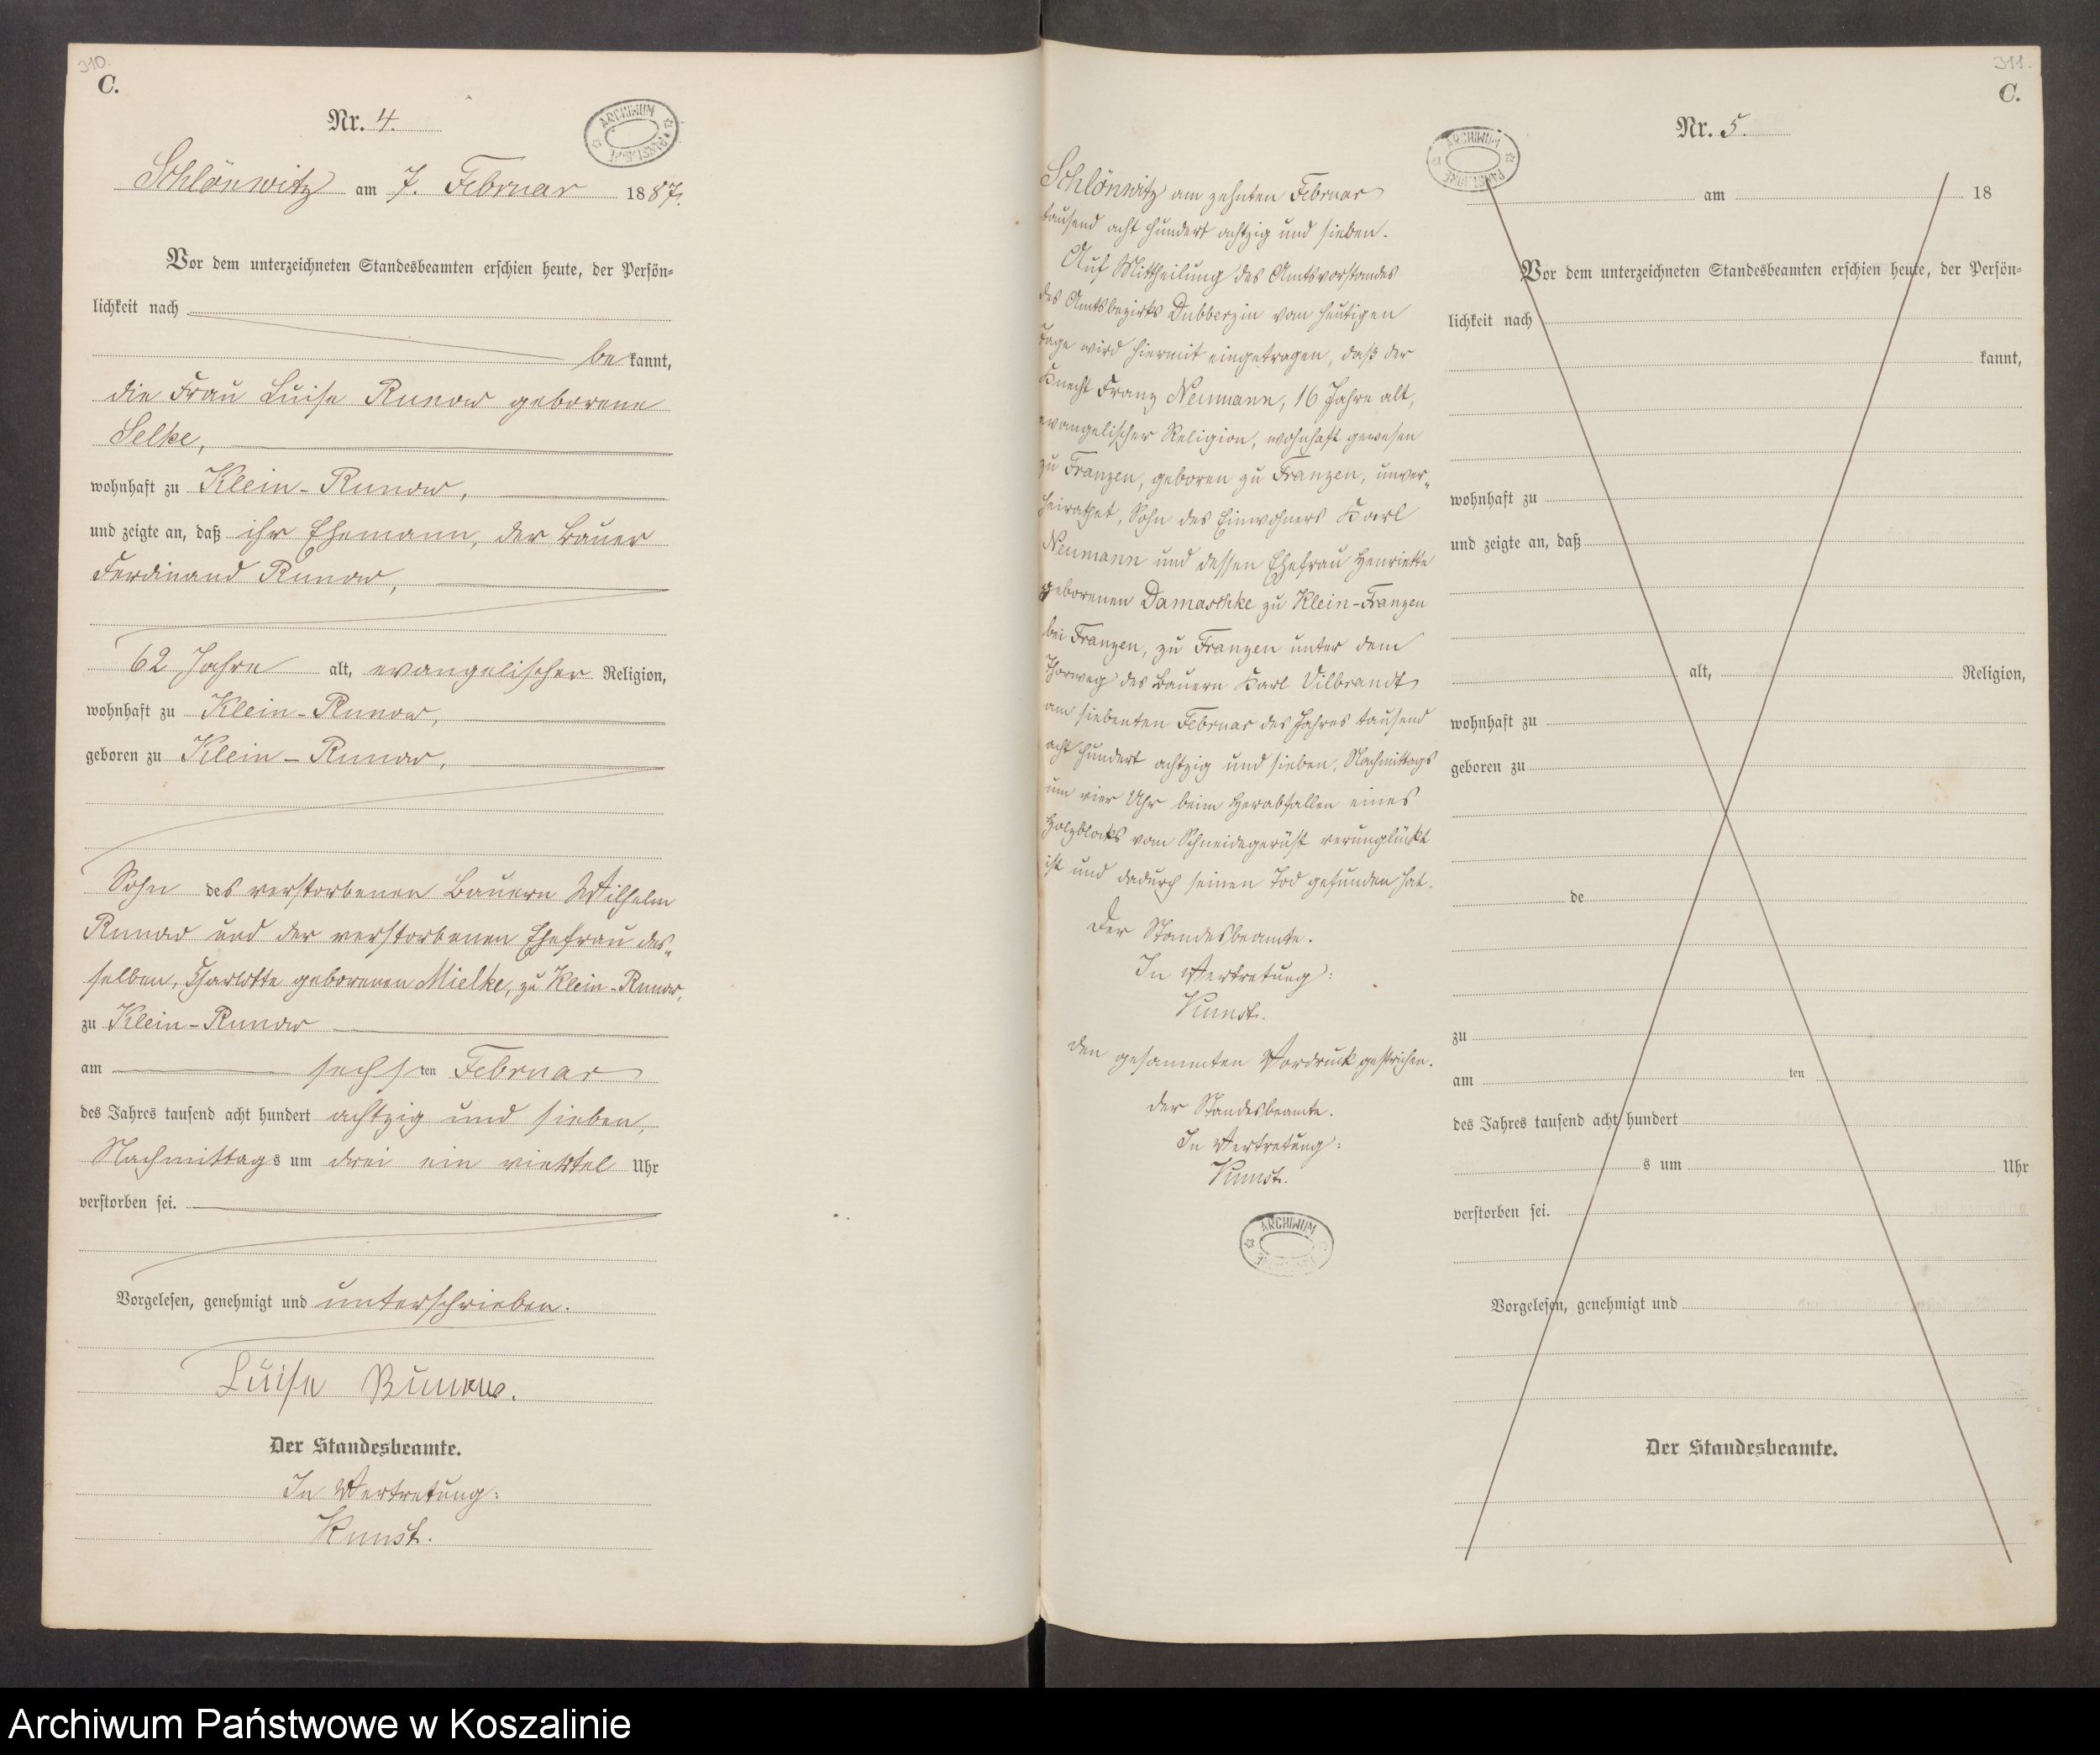 310.
C.
Nr. 4.
ARCHIWUM PAŃSTWOWE
Schlönwitz am 7. Februar 1887.
Vor dem unterzeichneten Standesbeamten erschien heute, der Persön-
lichkeit nach
be kannt,
die Frau Luise Runow geborene
Selke,
wohnhaft zu Klein-Runow,
und zeigte an, daß ihr Ehemann, der Bauer
Ferdinand Runow,
62 Jahre alt, evangelischer Religion,
wohnhaft zu Klein-Runow,
geboren zu Klein-Runow,
Sohn des verstorbenen Bauern Wilhelm
Runow und der verstorbenen Ehefrau des-
selben, Charlotte geborenen Mielke, zu Klein-Runow,
zu Klein-Runow
am sechsten Februar
des Jahres tausend acht hundert achtzig und sieben,
Nachmittags um drei ein viertel Uhr
verstorben sei.
Vorgelesen, genehmigt und unterschrieben.
Luise Runow.
Der Standesbeamte.
In Vertretung:
Kunst.
Schlönwitz am zehnten Februar
tausend acht hundert achtzig und sieben.
Auf Mittheilung des Amtsvorstandes
des Amtsbezirks Dubberzin vom heutigen
Tage wird hiermit eingetragen, daß der
Knecht Franz Neumann, 16 Jahre alt,
evangelischer Religion, wohnhaft gewesen
zu Franzen, geboren zu Franzen, unver-
heirathet, Sohn des Einwohners Karl
Neumann und dessen Ehefrau Henriette
geborenen Damaschke zu Klein-Franzen
bei Franzen, zu Franzen unter dem
Thorweg des Bauern Karl Vilbrandt
am siebenten Februar des Jahres tausend
acht hundert achtzig und sieben, Nachmittags
um vier Uhr beim Herabfallen eines
Holzblocks vom Schneidegerüst verunglückt
ist und dadurch seinen Tod gefunden hat.
Der Standesbeamte.
In Vertretung:
Kunst.
Den gesammten Vordruck gestrichen.
Der Standesbeamte.
In Vertretung:
Kunst.
ARCHIWUM
311.
C.
Nr. 5.
ARCHIWUM PAŃSTWOWE
am 18
Vor dem unterzeichneten Standesbeamten erschien heute, der Persön-
lichkeit nach
kannt,
wohnhaft zu
und zeigte an, daß
alt, Religion,
wohnhaft zu
geboren zu
de
zu
am ten
des Jahres tausend acht hundert
s um Uhr
verstorben sei.
Vorgelesen, genehmigt und
Der Standesbeamte.
Archiwum Państwowe w Koszalinie